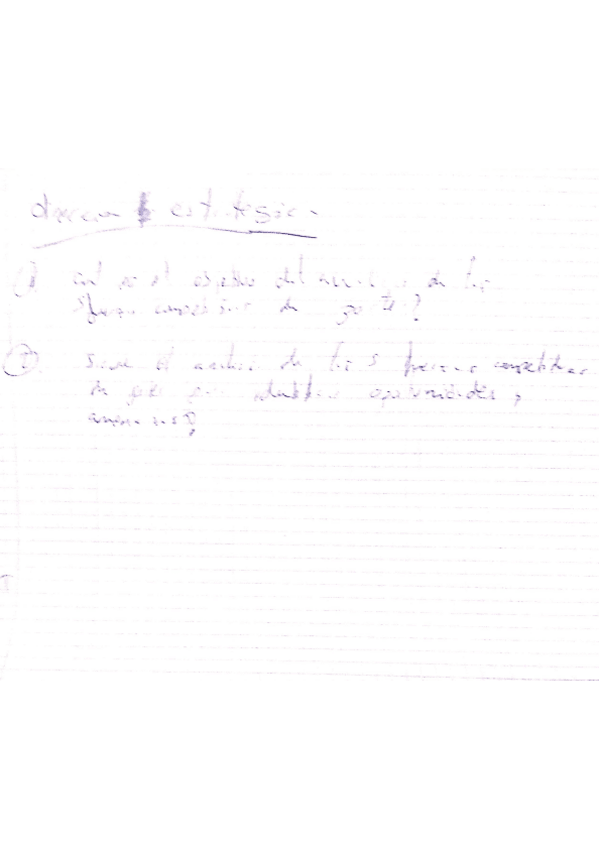 dirección estratégica
① cual es el objetivo del analisis de las
5 fuerzas competitivas de porter?
② Sirve el analisis de las 5 fuerzas competitivas
de porter para identificar oportunidades y
amenazas?